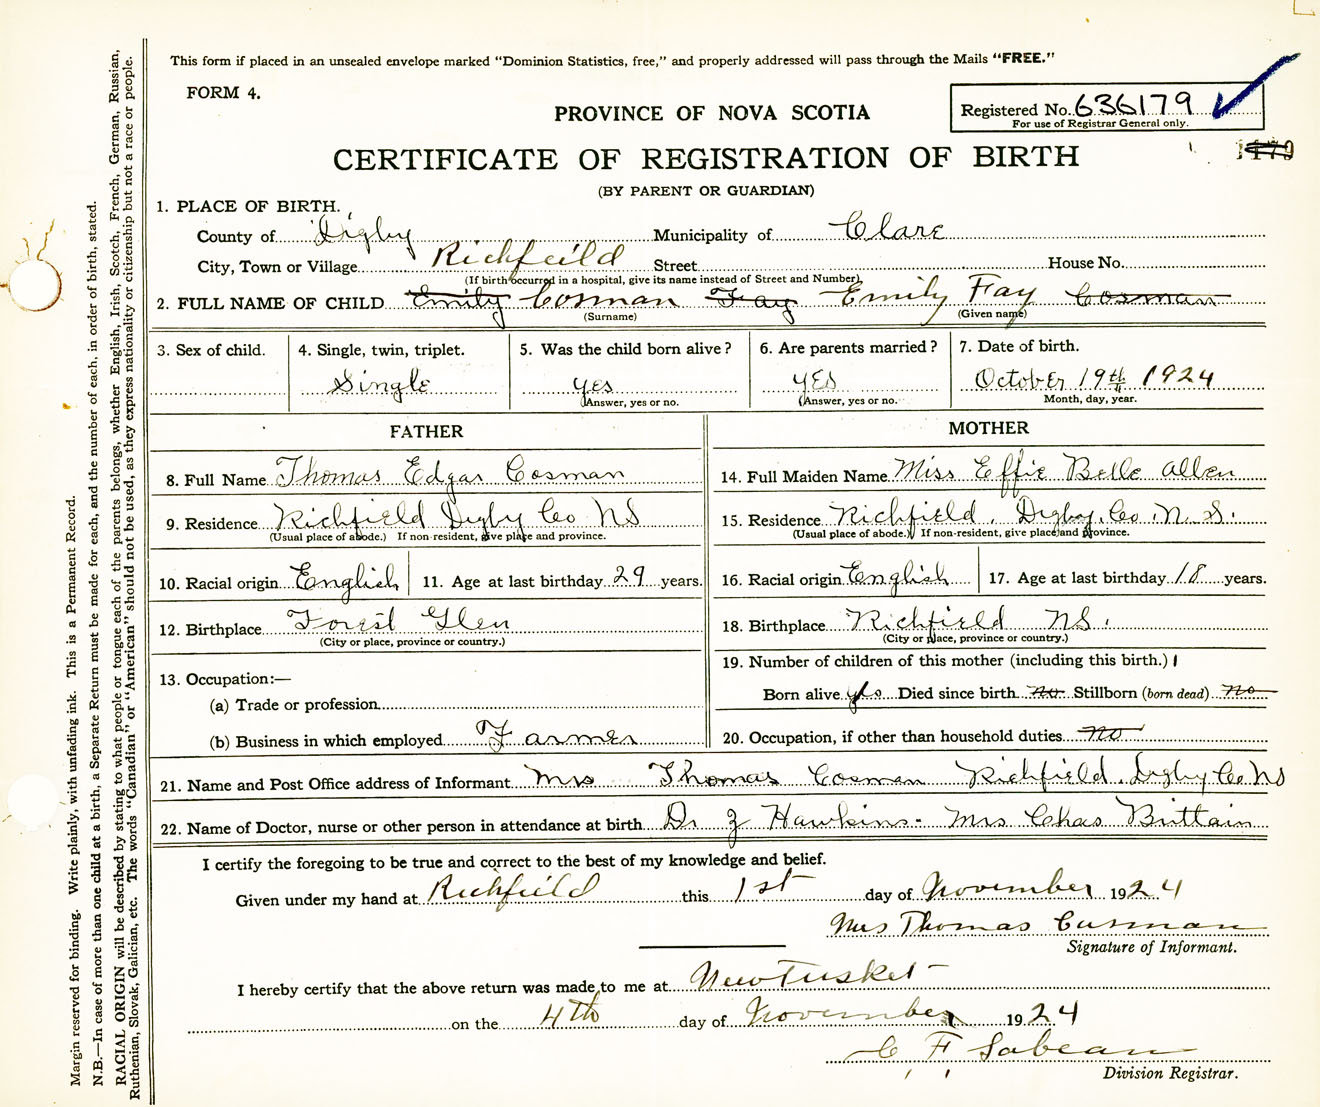 This form if placed in an unsealed envelope marked "Dominion Statistics, free," and properly addressed will pass through the Mails "FREE."
FORM 4.
PROVINCE OF NOVA SCOTIA
Registered No. 636179
For use of Registrar General only.
CERTIFICATE OF REGISTRATION OF BIRTH
1179
(BY PARENT OR GUARDIAN)
1. PLACE OF BIRTH.
County of Digby Municipality of Clare
City, Town or Village Richfeild Street House No.
(If birth occurred in a hospital, give its name instead of Street and Number)
2. FULL NAME OF CHILD Emily Cosman Fay Emily Fay Cosman
(Surname) (Given name)
3. Sex of child. 4. Single, twin, triplet. 5. Was the child born alive? 6. Are parents married? 7. Date of birth.
Single yes yes October 19th 1924
(Answer, yes or no. (Answer, yes or no. Month, day, year.
FATHER MOTHER
8. Full Name Thomas Edgar Cosman 14. Full Maiden Name Miss Effie Belle Allen
9. Residence Richfield Digby Co NS 15. Residence Richfield, Digby, Co. N. S.
(Usual place of abode.) If non-resident, give place and province. (Usual place of abode.) If non-resident, give place and province.
10. Racial origin English 11. Age at last birthday 29 years. 16. Racial origin English 17. Age at last birthday 18 years.
12. Birthplace Forest Glen 18. Birthplace Richfield NS.
(City or place, province or country.) (City or place, province or country.)
13. Occupation:— 19. Number of children of this mother (including this birth.) 1
(a) Trade or profession Born alive yes Died since birth no Stillborn (born dead) no
(b) Business in which employed Farmer 20. Occupation, if other than household duties no
21. Name and Post Office address of Informant Mrs Thomas Cosman Richfield, Digby Co. NS
22. Name of Doctor, nurse or other person in attendance at birth Dr J Hawkins - Mrs Chas Brittain
I certify the foregoing to be true and correct to the best of my knowledge and belief.
Given under my hand at Richfield this 1st day of November 1924
Mrs Thomas Cusman
Signature of Informant.
I hereby certify that the above return was made to me at New Tusket
on the 4th day of November 1924
C F Sabean
Division Registrar.
Margin reserved for binding. Write plainly, with unfading ink. This is a Permanent Record.
N.B.—In case of more than one child at a birth, a Separate Return must be made for each, and the number of each, in order of birth, stated.
RACIAL ORIGIN will be described by stating to what people or tongue each of the parents belongs, whether English, Irish, Scotch, French, German, Russian,
Ruthenian, Slovak, Galician, etc. The words "Canadian" or "American" should not be used, as they express nationality or citizenship but not a race or people.